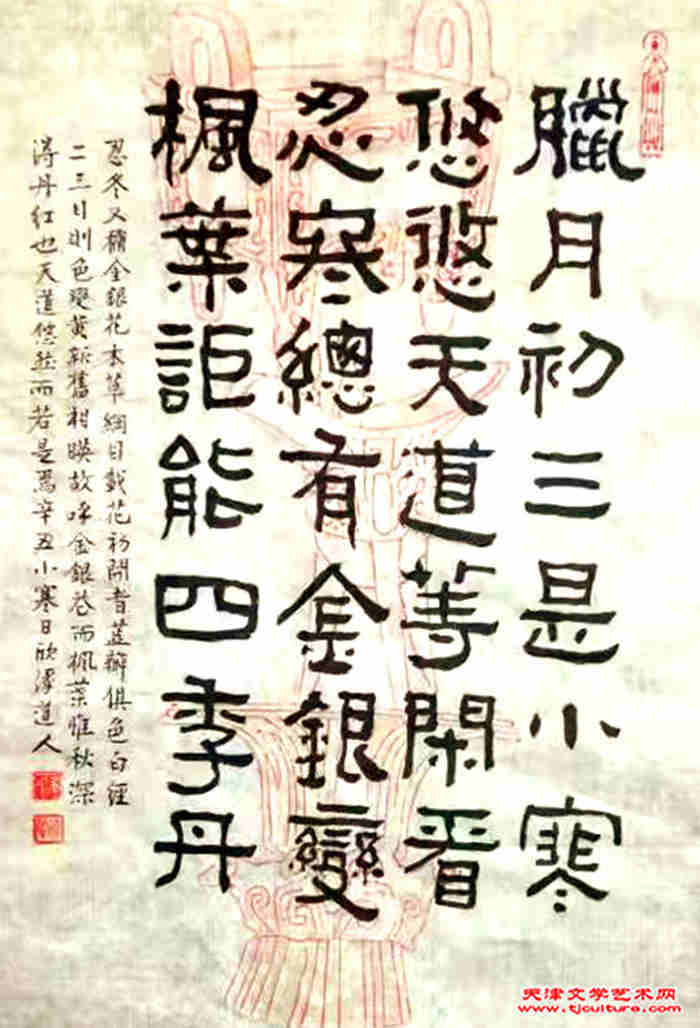 臘月初三是小寒
悠悠天道等閑看
忍寒總有金銀變
楓葉詎能四季丹
忍冬又稱金銀花本草綱目載花初開者蕊瓣俱色白經
二三日則色變黃新舊相映故呼金銀花而楓葉惟秋深
得丹紅也天道悠悠而若是焉辛丑小寒日欣澤道人
天津文学艺术网
www.tjculture.com